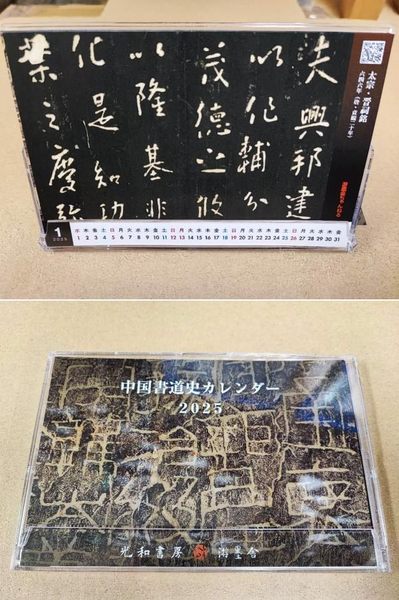 太宗・晋祠銘
六四六年(唐・貞観二十年)
夫興邦建
以作輔分
茂德之攸
以隆基非
化是知功
葉之慶弥
1
2025
水 木 金 土 日 月 火 水 木 金 土 日 月 火 水 木 金 土 日 月 火 水 木 金 土 日 月 火 水 木 金
1 2 3 4 5 6 7 8 9 10 11 12 13 14 15 16 17 18 19 20 21 22 23 24 25 26 27 28 29 30 31
中国書道史カレンダー
2025
光和書房